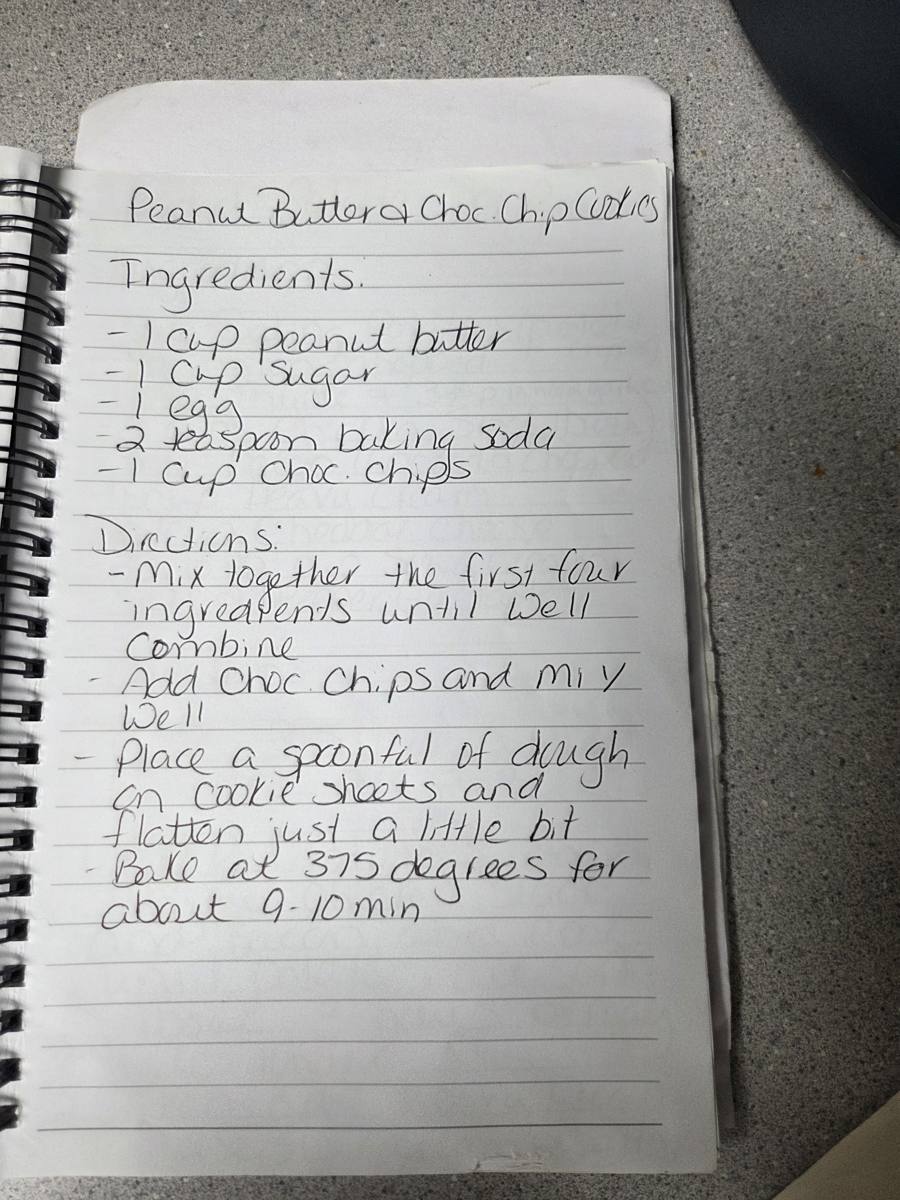 Peanut Butter & Choc. Chip Cookies
Ingredients.
- 1 cup peanut butter
- 1 cup sugar
- 1 egg
- 2 teaspoon baking soda
- 1 cup choc. chips
Directions:
- Mix together the first four
ingredients until well
combine
- Add choc. chips and mix
well
- Place a spoonful of dough
on cookie sheets and
flatten just a little bit
- Bake at 375 degrees for
about 9-10 min